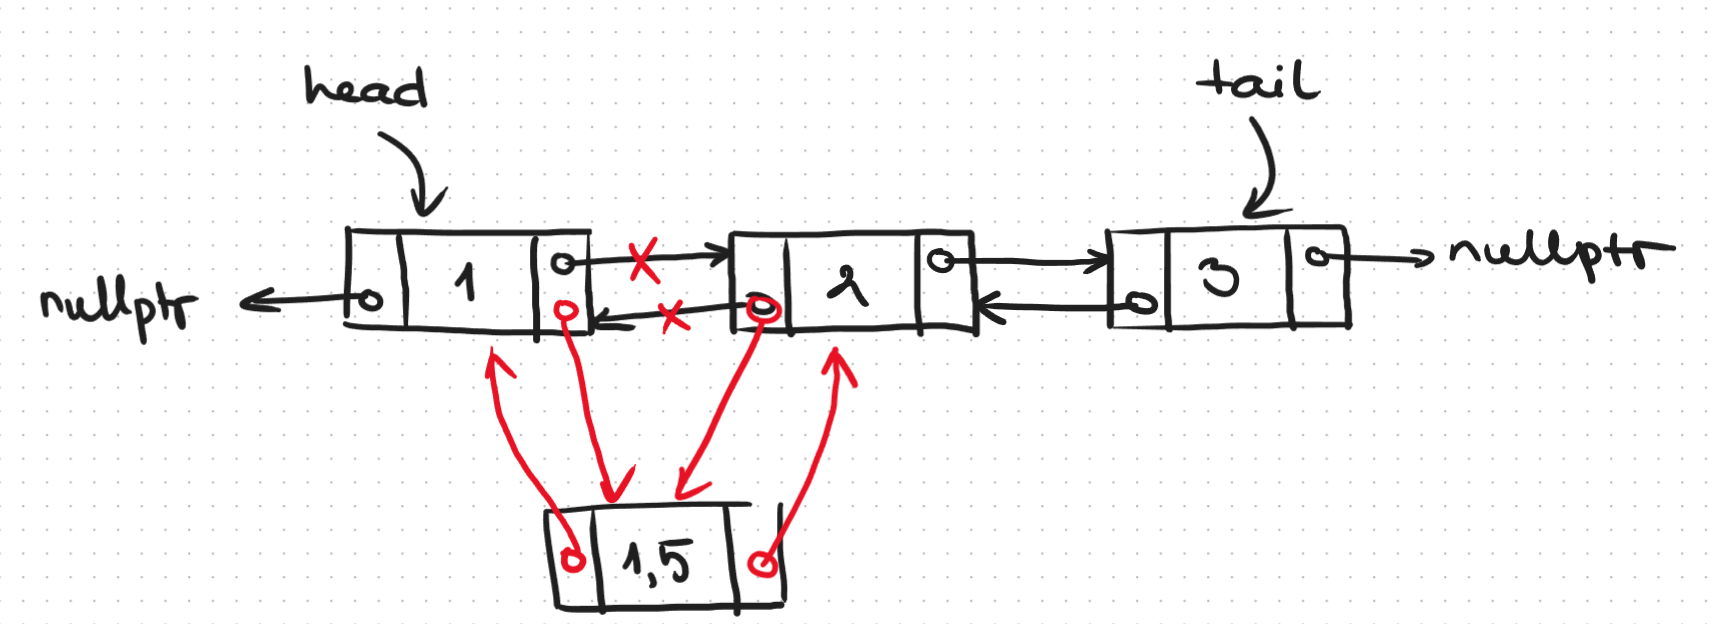 head
tail
nullptr
1
2
3
nullptr
1,5